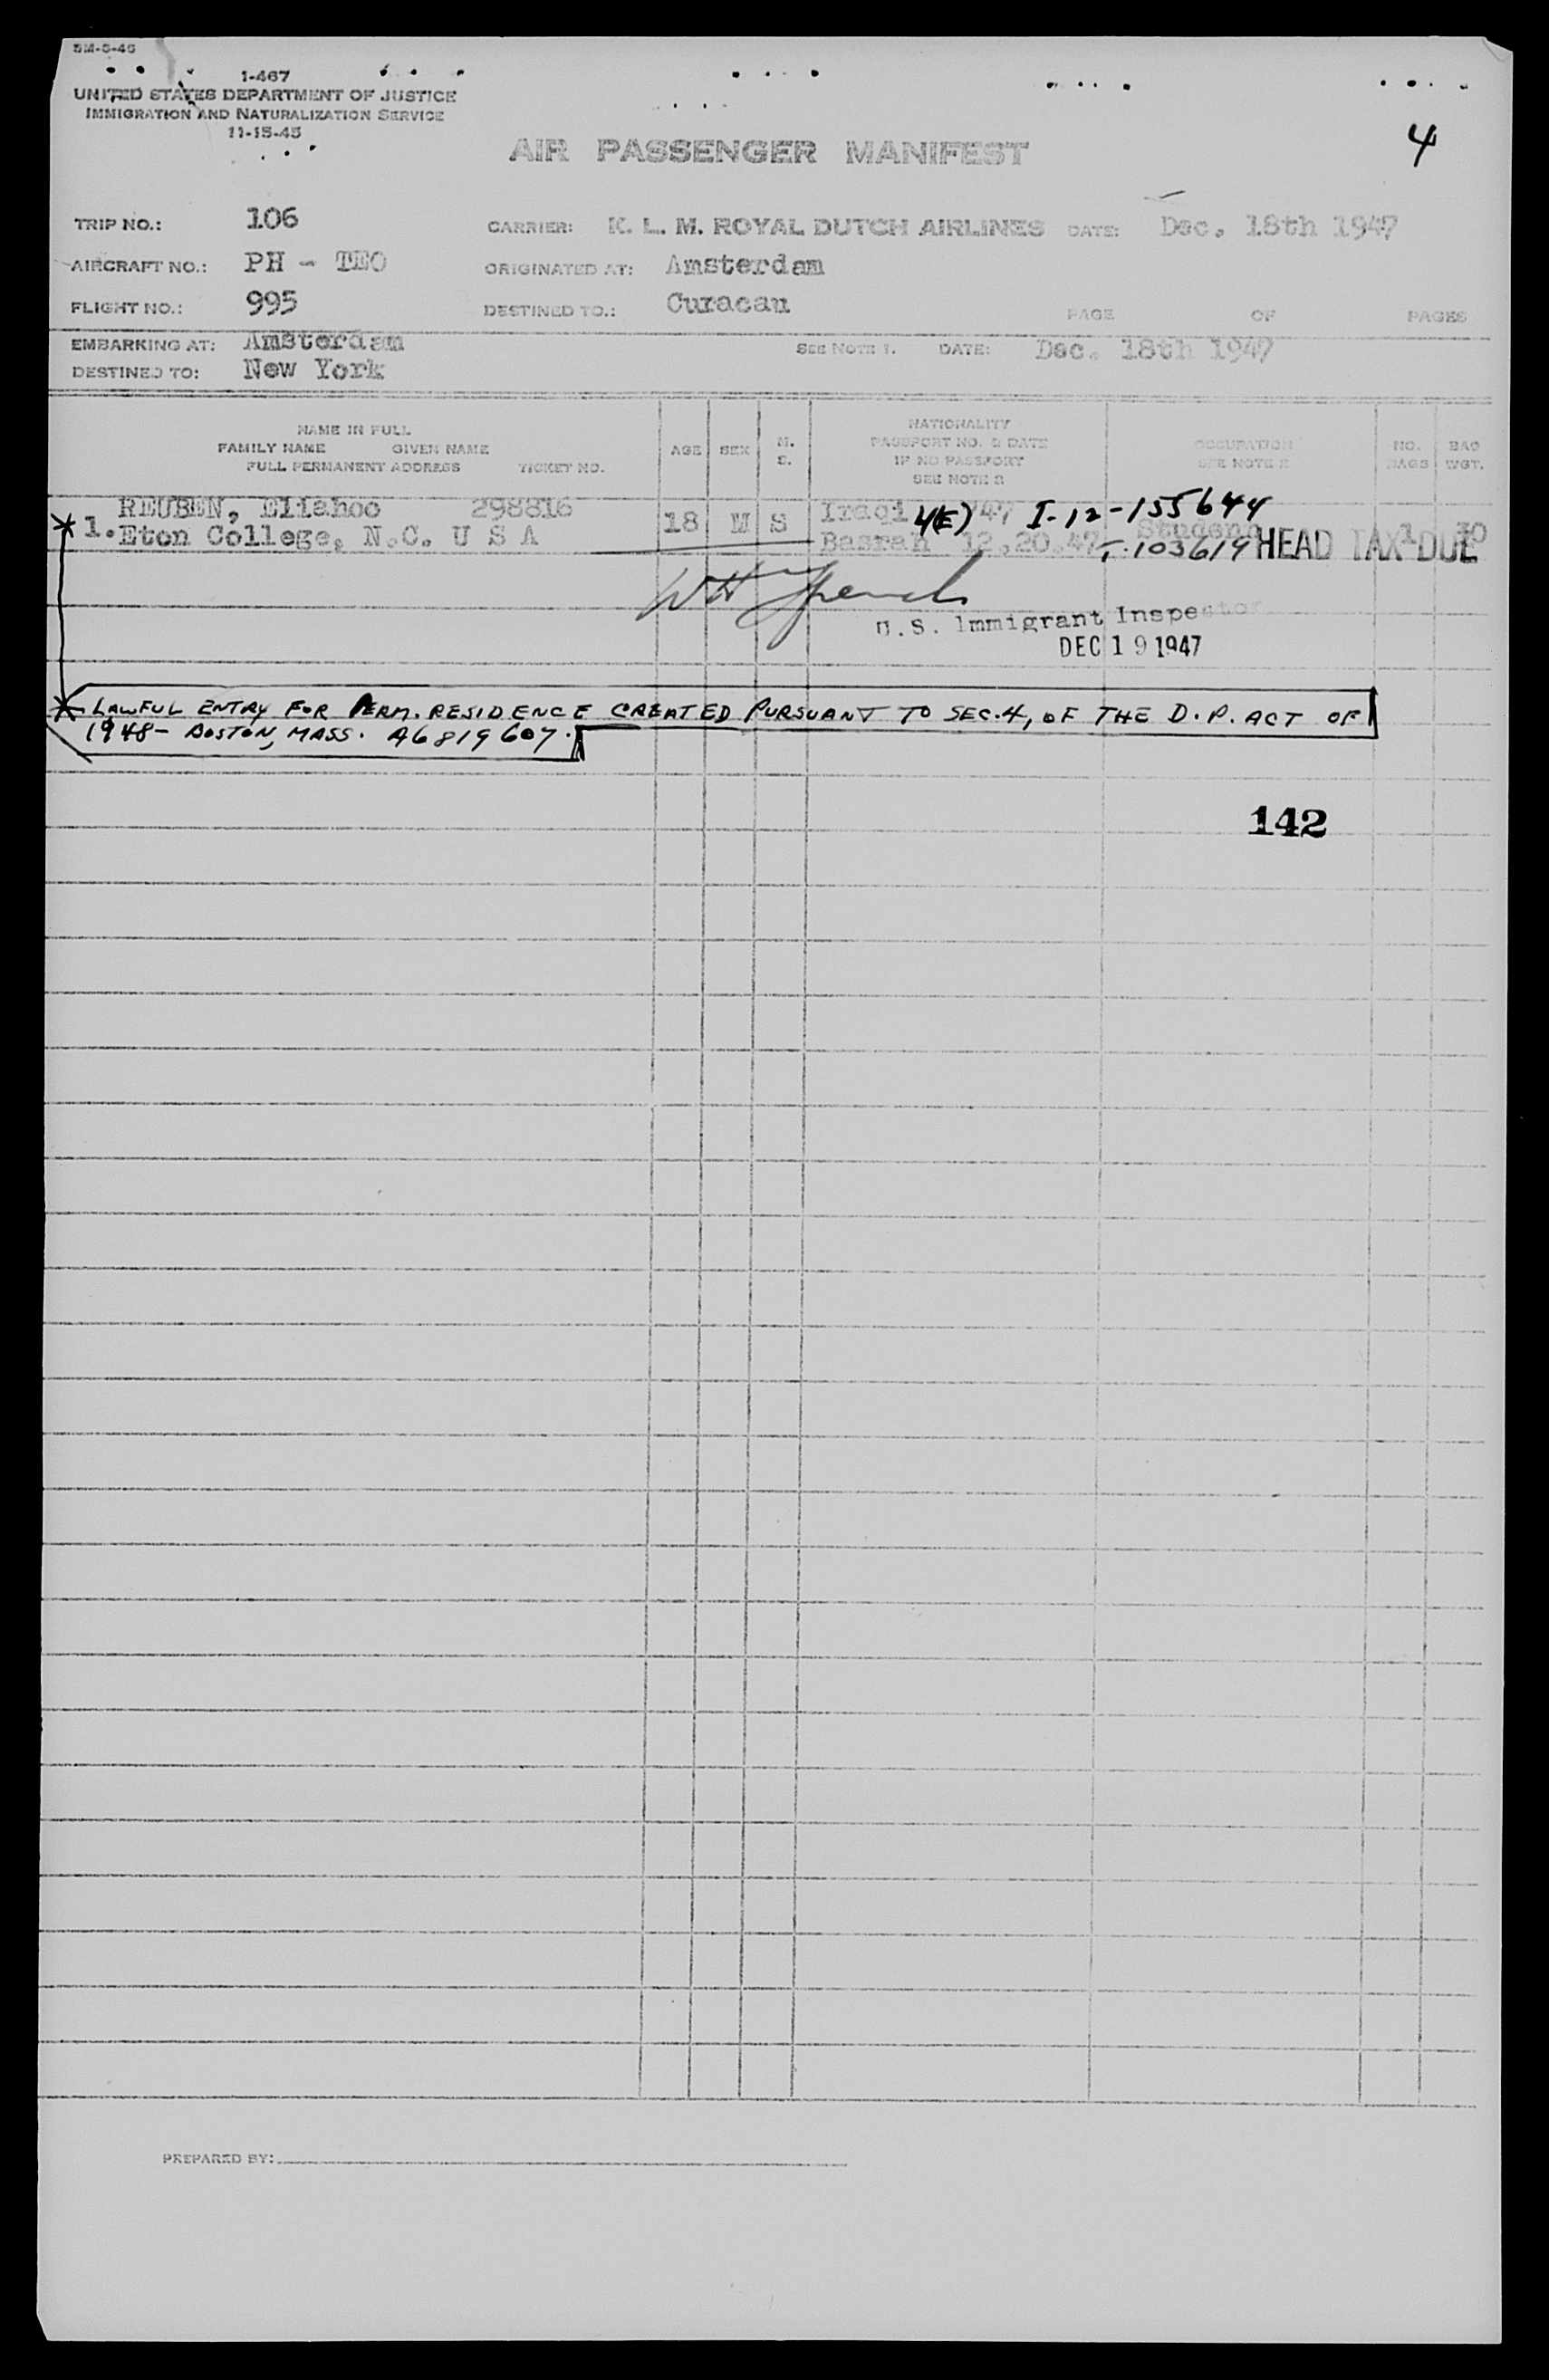 5M-5-46
1-467
UNITED STATES DEPARTMENT OF JUSTICE
IMMIGRATION AND NATURALIZATION SERVICE
11-15-45
AIR PASSENGER MANIFEST
4
TRIP NO.: 106 CARRIER: K. L. M. ROYAL DUTCH AIRLINES DATE: Dec. 18th 1947
AIRCRAFT NO.: PH - TEO ORIGINATED AT: Amsterdam
FLIGHT NO.: 995 DESTINED TO.: Curacau PAGE OF PAGES
EMBARKING AT: Amsterdam SEE NOTE 1. DATE: Dec. 18th 1947
DESTINED TO: New York
NAME IN FULL
FAMILY NAME GIVEN NAME
FULL PERMANENT ADDRESS TICKET NO.
AGE SEX M. S.
NATIONALITY
PASSPORT NO. & DATE
IF NO PASSPORT
SEE NOTE 2
OCCUPATION
SEE NOTE 2
NO. BAGS
BAG WGT.
REUBEN, Eliahoo 298816 18 M S Iraqi 4(E) 747 I-12-155644
1. Eton College, N.C. U S A Basrah 12.20.47 Student T-103619 HEAD TAX DUE 1 30
U.S. Immigrant Inspector
DEC 19 1947
* LAWFUL ENTRY FOR PERM. RESIDENCE CREATED PURSUANT TO SEC. 4, OF THE D.P. ACT OF
1948 - BOSTON, MASS. A6819607.
142
PREPARED BY: